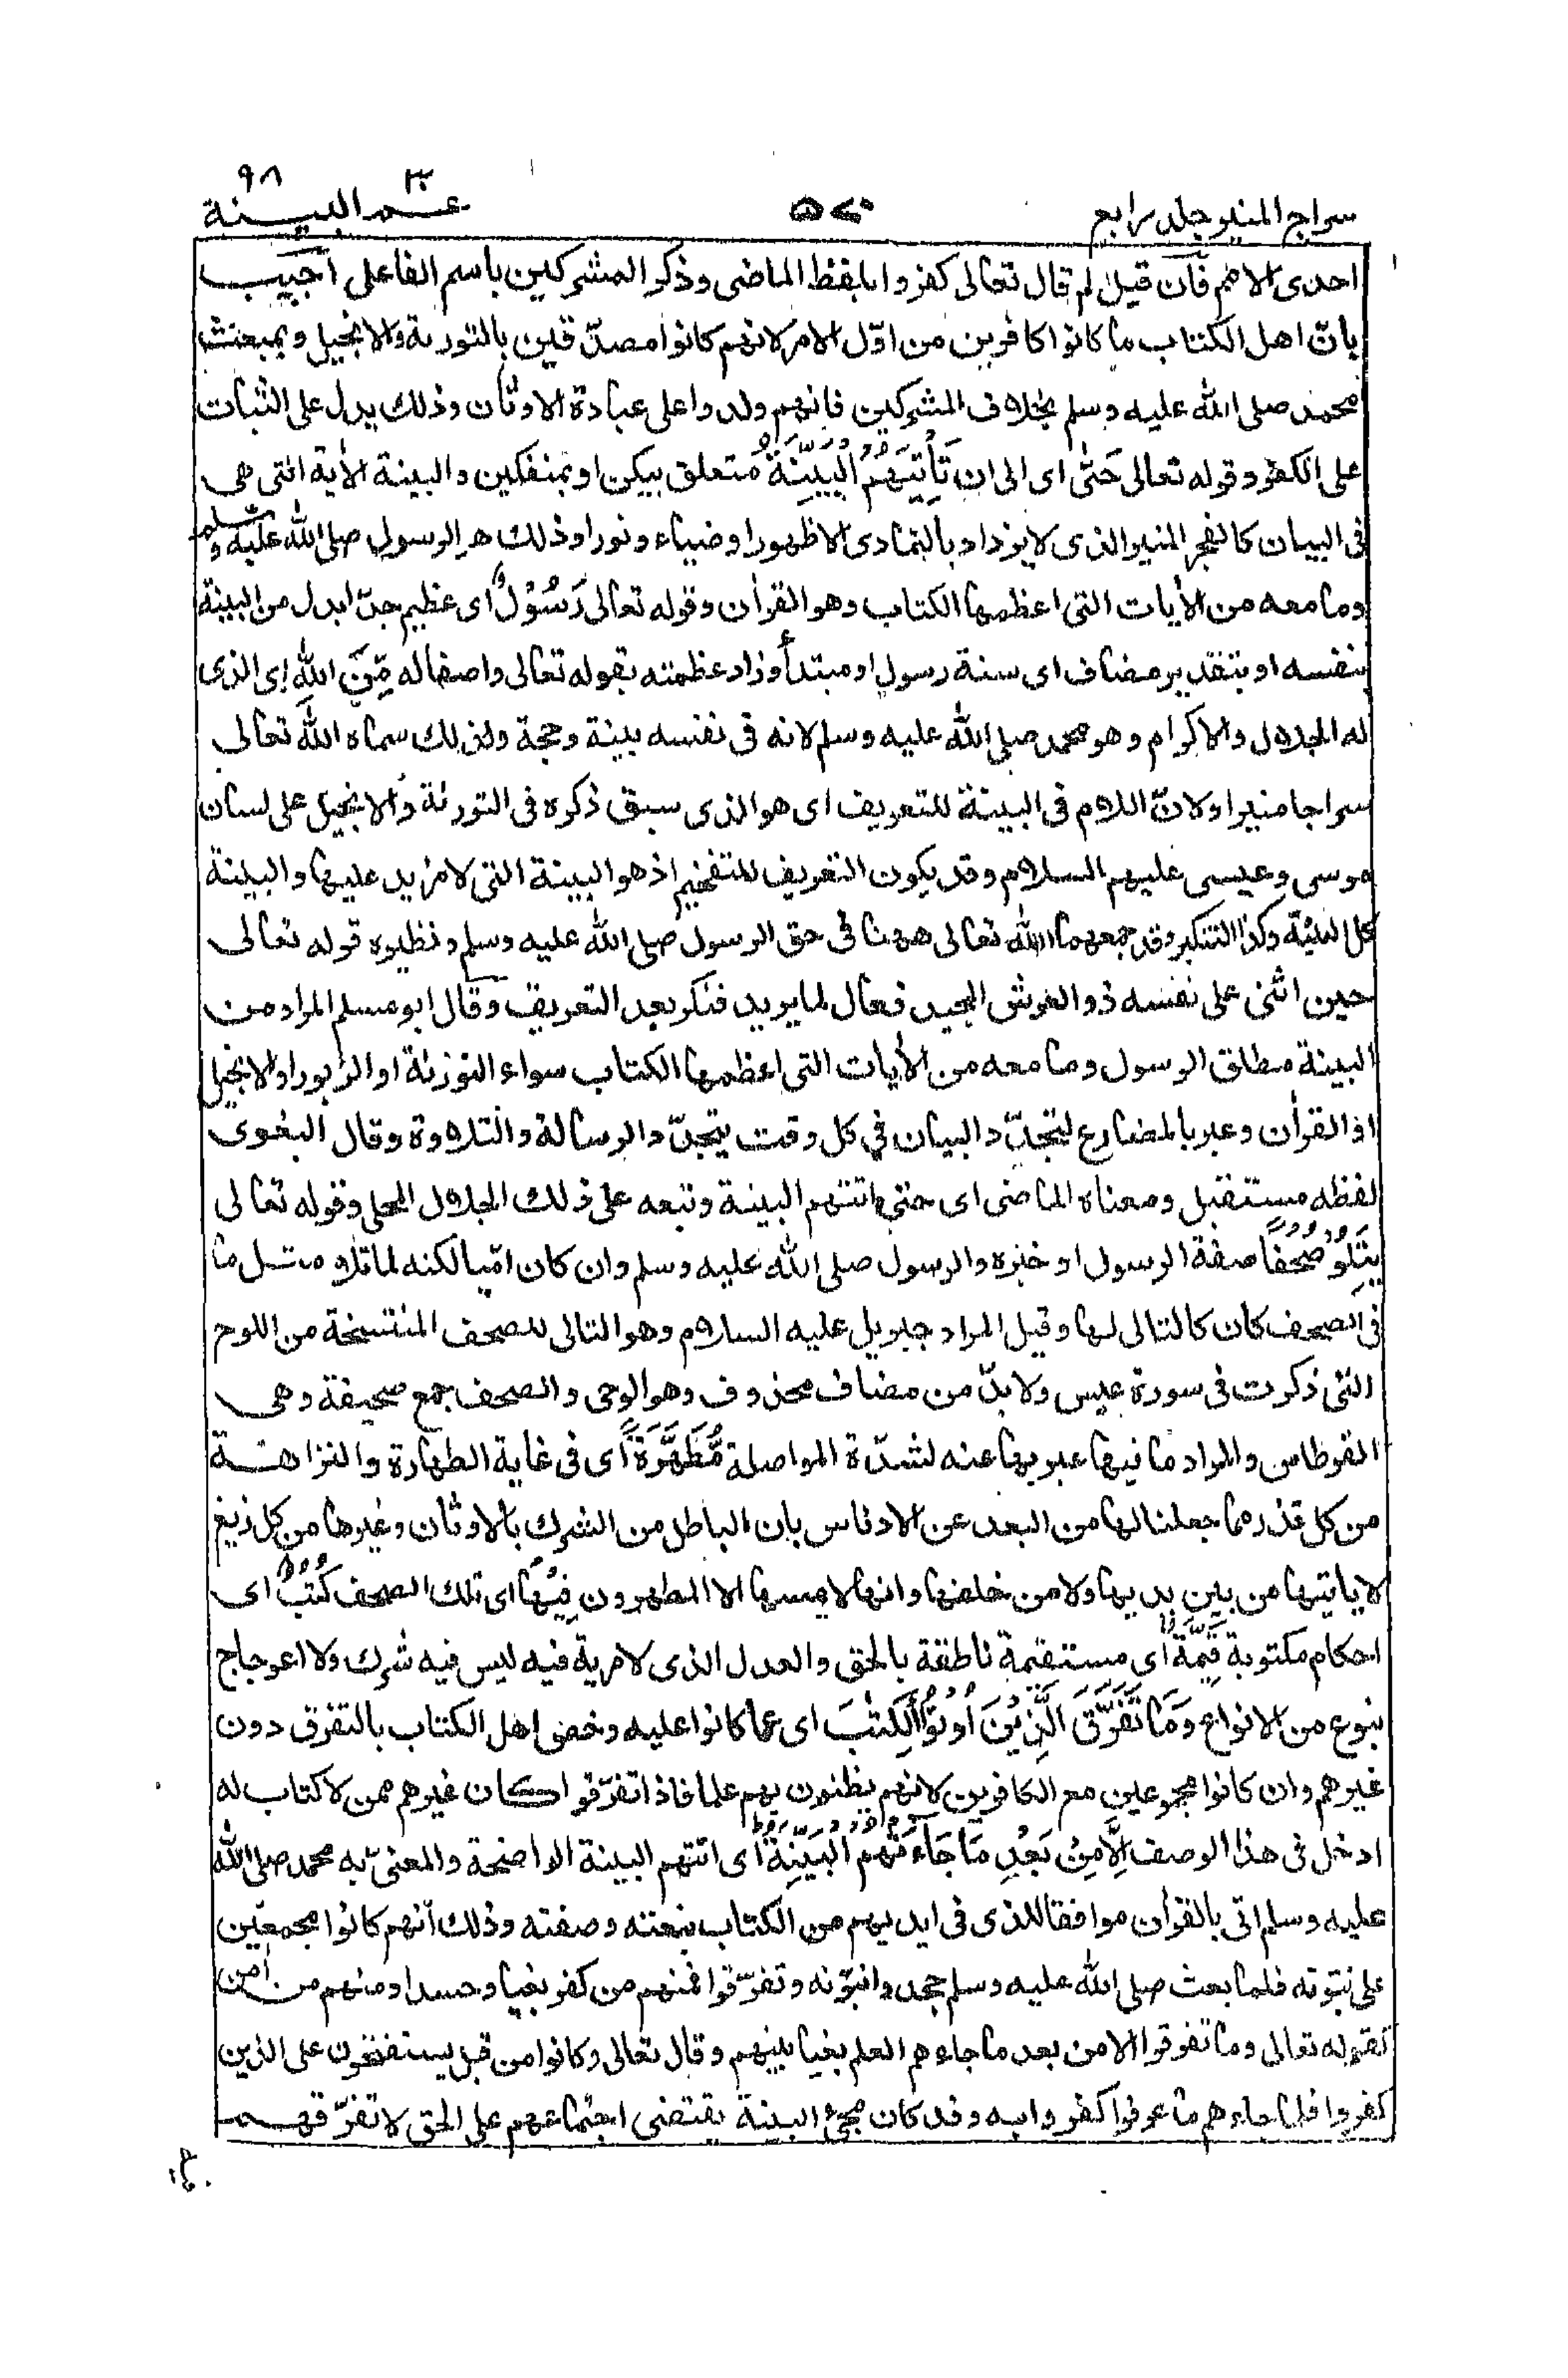 سراج المنير جلد رابع
٥٧٠
عــم البيــنة
٣٠
٩٨
احدى الامم فان قيل لم قال تعالى كفروا بلفظ الماضى وذكر المشركين باسم الفاعل اجيب
بانّ اهل الكتاب ما كانوا كافرين من اوّل الامر لانهم كانوا مصدّقين بالتورىة والانجيل وبمبعث
محمد صلى الله عليه وسلم بخلاف المشركين فانهم ولدوا على عبادة الاوثان وذلك يدل على الثبات
على الكفر وقوله تعالى حَتّٰى اى الى ان تَأْتِيَهُمُ الْبَيِّنَةُ متعلق بيكن او بمنفكين والبينة الأية التى هى
فى البيان كالفجر المنير الذى لا يزداد بالتمادى الا ظهورا وضياء ونورا وذلك هو الرسول صلى الله عليه وسلم
وما معه من الأيات التى اعظمها الكتاب وهو القرأن وقوله تعالى رَسُوْلٌ اى عظيم جدّا بدل من البينة
بنفسه او بتقدير مضاف اى سنة رسول او مبتدأ وزاد عظمته بقوله تعالى واصفا له مِّنَ اللهِ اى الذى
له الجلال والاكرام وهو محمد صلى الله عليه وسلم لانه فى نفسه بينة وحجة ولذلك سماه الله تعالى
سراجا منيرا ولانّ اللام فى البينة للتعريف اى هو الذى سبق ذكره فى التورىة والانجيل على لسان
موسى وعيسى عليهم السلام وقد يكون التعريف للتفخيم اذ هو البينة التى لا مزيد عليها والبينة
كل البينة وكذا التنكير وقد جمعهما الله تعالى ههنا فى حق الرسول صلى الله عليه وسلم ونظيره قوله تعالى
حين اثنى على نفسه ذو العرش المجيد فعال لما يريد فنكر بعد التعريف وقال ابو مسلم المراد من
البينة مطلق الرسول وما معه من الأيات التى اعظمها الكتاب سواء التورىة او الزبور او الانجيل
او القرأن وعبر بالمضارع لتجدّد البيان فى كل وقت بتجدّد الرسالة والتلاوة وقال البغوى
لفظه مستقبل ومعناه الماضى اى حتى اتتهم البينة وتبعه على ذلك الجلال المحلى وقوله تعالى
يَتْلُوْ صُحُفًا صفة الرسول او خبره والرسول صلى الله عليه وسلم وان كان امّيا لكنه لما تلا مثل ما
فى الصحف كان كالتالى لها وقيل المراد جبريل عليه السلام وهو التالى للصحف المنتسخة من اللوح
التى ذكرت فى سورة عبس ولا بدّ من مضاف محذوف وهو الوحى والصحف جمع صحيفة وهى
القرطاس والمراد ما فيها عبر بها عنه لشدّة المواصلة مُّطَهَّرَةً اى فى غاية الطهارة والنزاهــة
من كل قذر مما جعلنا لها من البعد عن الادناس بان الباطل من الشرك بالاوثان وغيرها من كل زيغ
لا ياتيها من بين يديها ولا من خلفها وانها لا يمسها الا المطهرون فِيْهَا اى تلك الصحف كُتُبٌ اى
احكام مكتوبة قَيِّمَةٌ اى مستقيمة ناطقة بالحق والعدل الذى لا مرية فيه ليس فيه شرك ولا اعوجاج
بنوع من الانواع وَمَا تَفَرَّقَ الَّذِيْنَ اُوْتُوا الْكِتٰبَ اى عما كانوا عليه وخص اهل الكتاب بالتفرق دون
غيرهم وان كانوا مجموعين مع الكافرين لانهم يظنون بهم علما فاذا تفرّقوا كان غيرهم ممن لا كتاب له
ادخل فى هذا الوصف اِلَّا مِنْ بَعْدِ مَا جَاءَتْهُمُ الْبَيِّنَةُ اى اتتهم البينة الواضحة والمعنىّ به محمد صلى الله
عليه وسلم اتى بالقرأن موافقا للذى فى ايديهم من الكتاب بنعته وصفته وذلك أنهم كانوا مجمعين
على نبوّته فلما بعث صلى الله عليه وسلم جحدوا نبوّته وتفرّقوا فمنهم من كفر بغيا وحسدا ومنهم من أمن
كقوله تعالى وما تفرقوا الا من بعد ما جاءهم العلم بغيا بينهم وقال تعالى وكانوا من قبل يستفتحون على الذين
كفروا فلما جاءهم ما عرفوا كفروا به وقد كان مجئ البينة يقتضى اجتماعهم على الحق لا تفرّقهــم